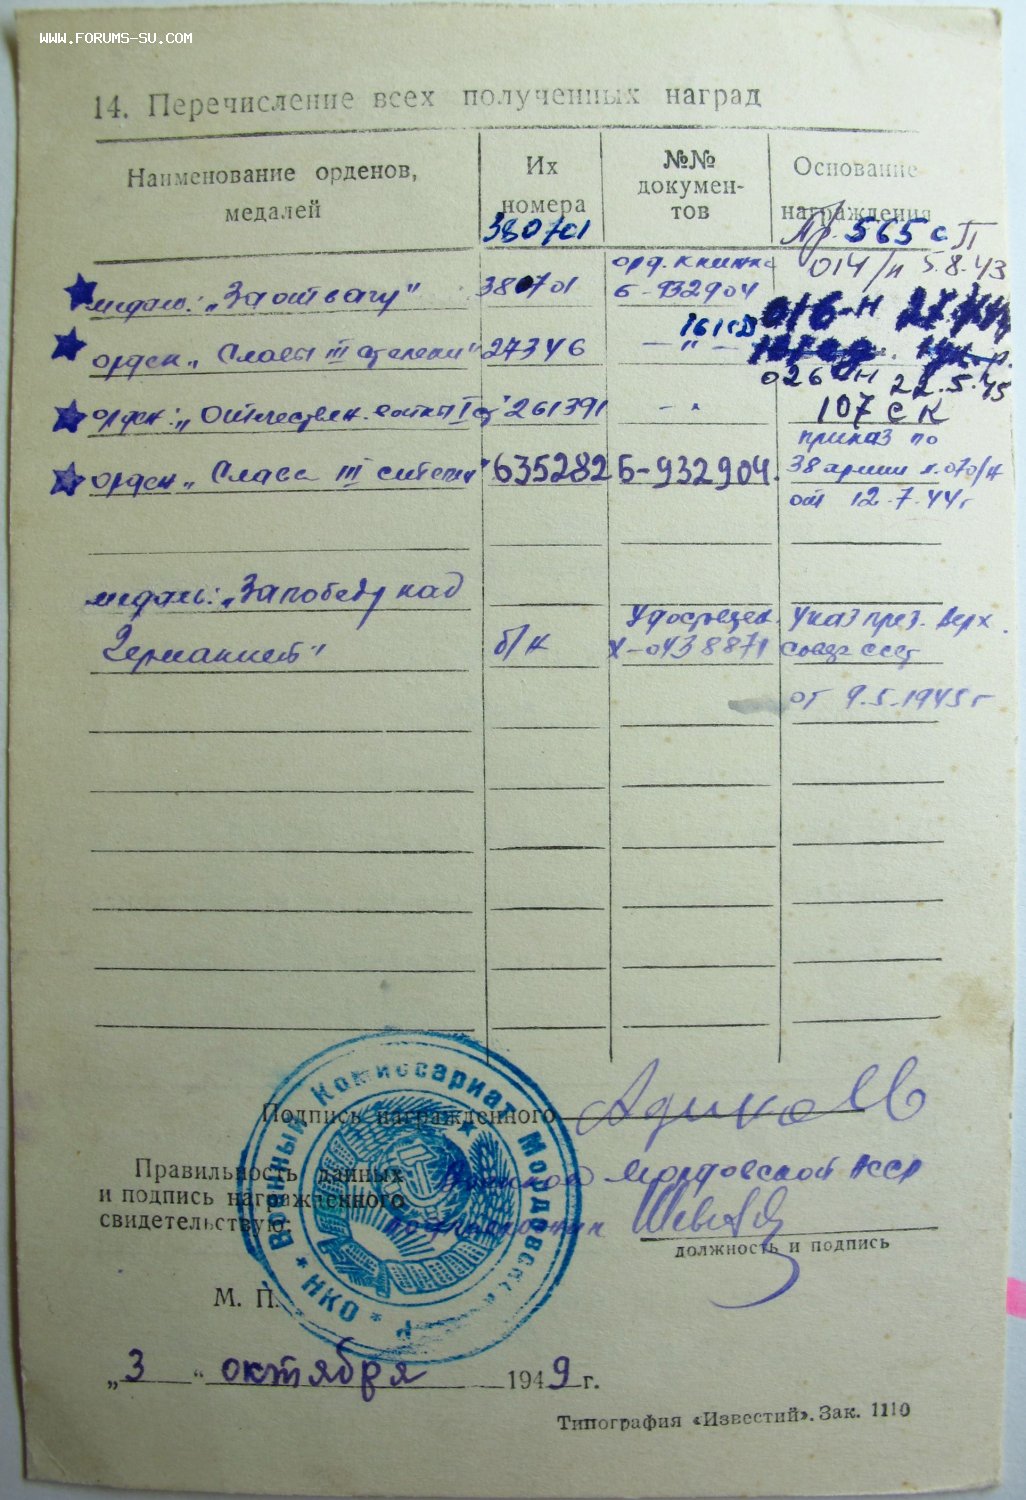 WWW.FORUMS-SU.COM
14. Перечисление всех полученных наград
Наименование орденов, медалей
Их номера
№№ докумен-тов
Основание награждения
380701
Пр. 565 с П
медаль: „За отвагу"
380701
орд. книжка Б-932904
014/н 5.8.43
орден „Славы III степени"
27346
— " —
016-н
026-н 22.5.45
орден: „Отечествен. войны I ст"
261391
— " —
107 СК
орден „Слава III степени"
635282
Б-932904.
приказ по 38 армии N. 070/н
от 12.7.44г
медаль: „За победу над
Германией"
б/н
Удостовер.
Х-0438871
Указ през. Верх.
Совета СССР
от 9.5.1945 г
Подпись награжденного
Правильность данных
и подпись награжденного
свидетельствую:
Мордовской АССР
должность и подпись
Военный Комиссариат Мордовской
* НКО *
М. П.
„3" октября 1949 г.
Типография «Известий». Зак. 1110